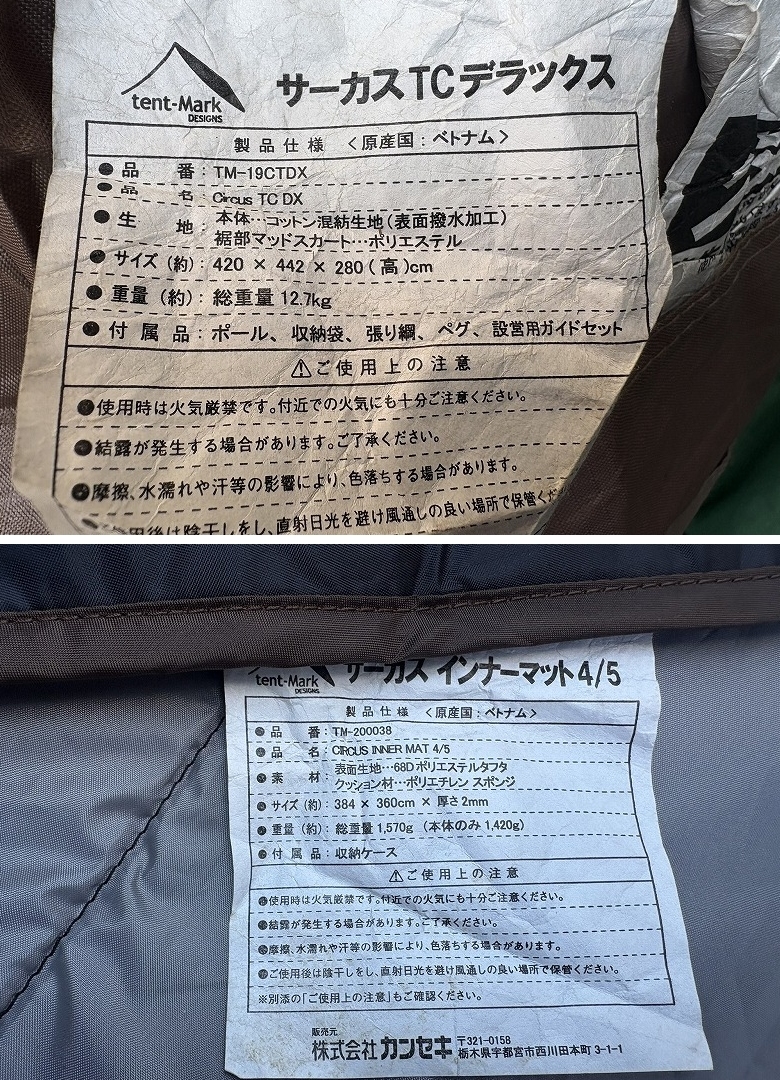 tent-Mark
DESIGNS
サーカスTCデラックス
製品仕様 〈原産国：ベトナム〉
●品 番：TM-19CTDX
●品 名：Circus TC DX
●生 地：本体…コットン混紡生地（表面撥水加工）
裾部マッドスカート…ポリエステル
●サイズ（約）：420 × 442 × 280（高）cm
●重量（約）：総重量 12.7kg
●付属品：ポール、収納袋、張り綱、ペグ、設営用ガイドセット
⚠ご使用上の注意
●使用時は火気厳禁です。付近での火気にも十分ご注意ください。
●結露が発生する場合があります。ご了承ください。
●摩擦、水濡れや汗等の影響により、色落ちする場合があります。
使用後は陰干しをし、直射日光を避け風通しの良い場所で保管くだ
tent-Mark
DESIGNS
サーカス インナーマット4/5
製品仕様 〈原産国：ベトナム〉
●品 番：TM-200038
●品 名：CIRCUS INNER MAT 4/5
●素 材：表面生地…68Dポリエステルタフタ
クッション材…ポリエチレン スポンジ
●サイズ（約）：384 × 360cm × 厚さ2mm
●重量（約）：総重量 1,570g（本体のみ 1,420g）
●付属品：収納ケース
⚠ご使用上の注意
●使用時は火気厳禁です。付近での火気にも十分ご注意ください。
●結露が発生する場合があります。ご了承ください。
●摩擦、水濡れや汗等の影響により、色落ちする場合があります。
●ご使用後は陰干しをし、直射日光を避け風通しの良い場所で保管ください。
※別添の「ご使用上の注意」もご確認ください。
販売元
株式会社 カンセキ 〒321-0158
栃木県宇都宮市西川田本町 3-1-1